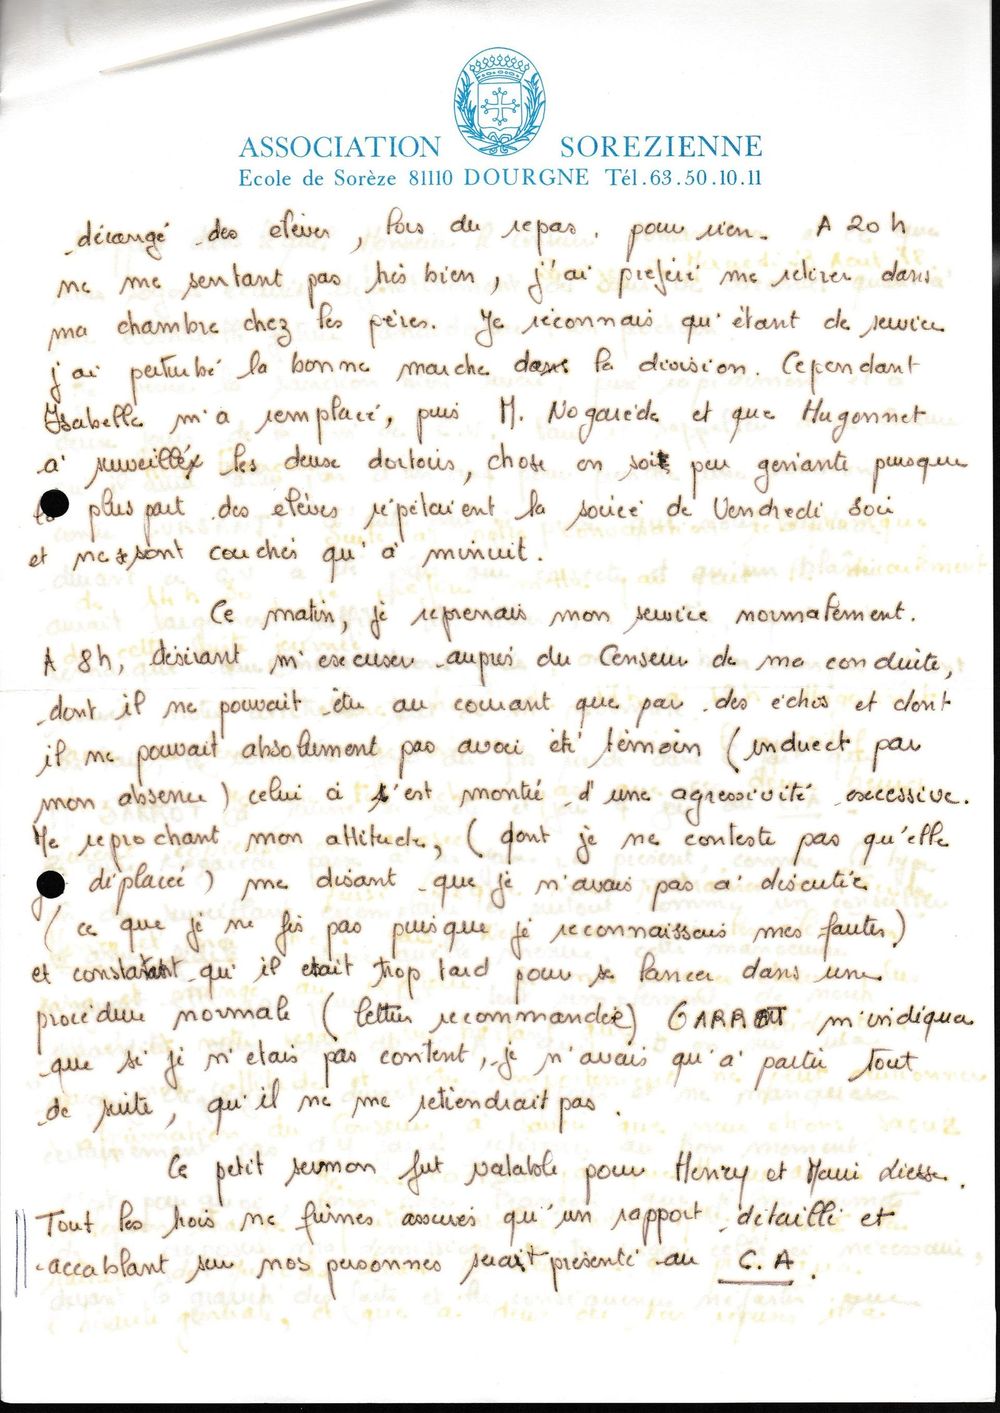 ASSOCIATION SOREZIENNE
Ecole de Sorèze 81110 DOURGNE Tél. 63.50.10.11
dérangé des elèves, lors du repas. pour rien. A 20 h
ne me sentant pas très bien, j'ai préféré me retirer dans
ma chambre chez les pères. Je reconnais qu'étant de service
j'ai perturbé la bonne marche dans la division. Cependant
Isabelle m'a remplacé, puis M. Nogarède et que Hugonnet
a surveillé les deux dortoirs, chose on soit peu genante puisque
la plus part des elèves répétaient la soirée de Vendredi Soir
et ne sont couchés qu'à minuit.
Ce matin, je reprenais mon service normalement.
A 8h, désirant m'excuser auprès du Censeur de ma conduite,
dont il ne pouvait être au courant que par des échos et dont
il ne pouvait absolument pas avoir été témoin (induect par
mon absence) celui ci s'est montré d'une agressivité excessive.
Me reprochant mon attitude, (dont je ne conteste pas qu'elle
déplacée) me disant que je n'avais pas à discuter
(ce que je ne fis pas puisque je reconnaissais mes fautes)
et constatant qu'il etait trop tard pour se lancer dans une
procédure normale (lettre recommandée) GARROT m'indiqua
que si je n'etais pas content, je n'avais qu'à partir tout
de suite, qu'il ne me retiendrait pas.
Ce petit sermon fut valable pour Henry et Marie Liesse.
Tout les trois ne fûmes assurés qu'un rapport détaillé et
accablant sur nos personnes serait présenté au C.A.